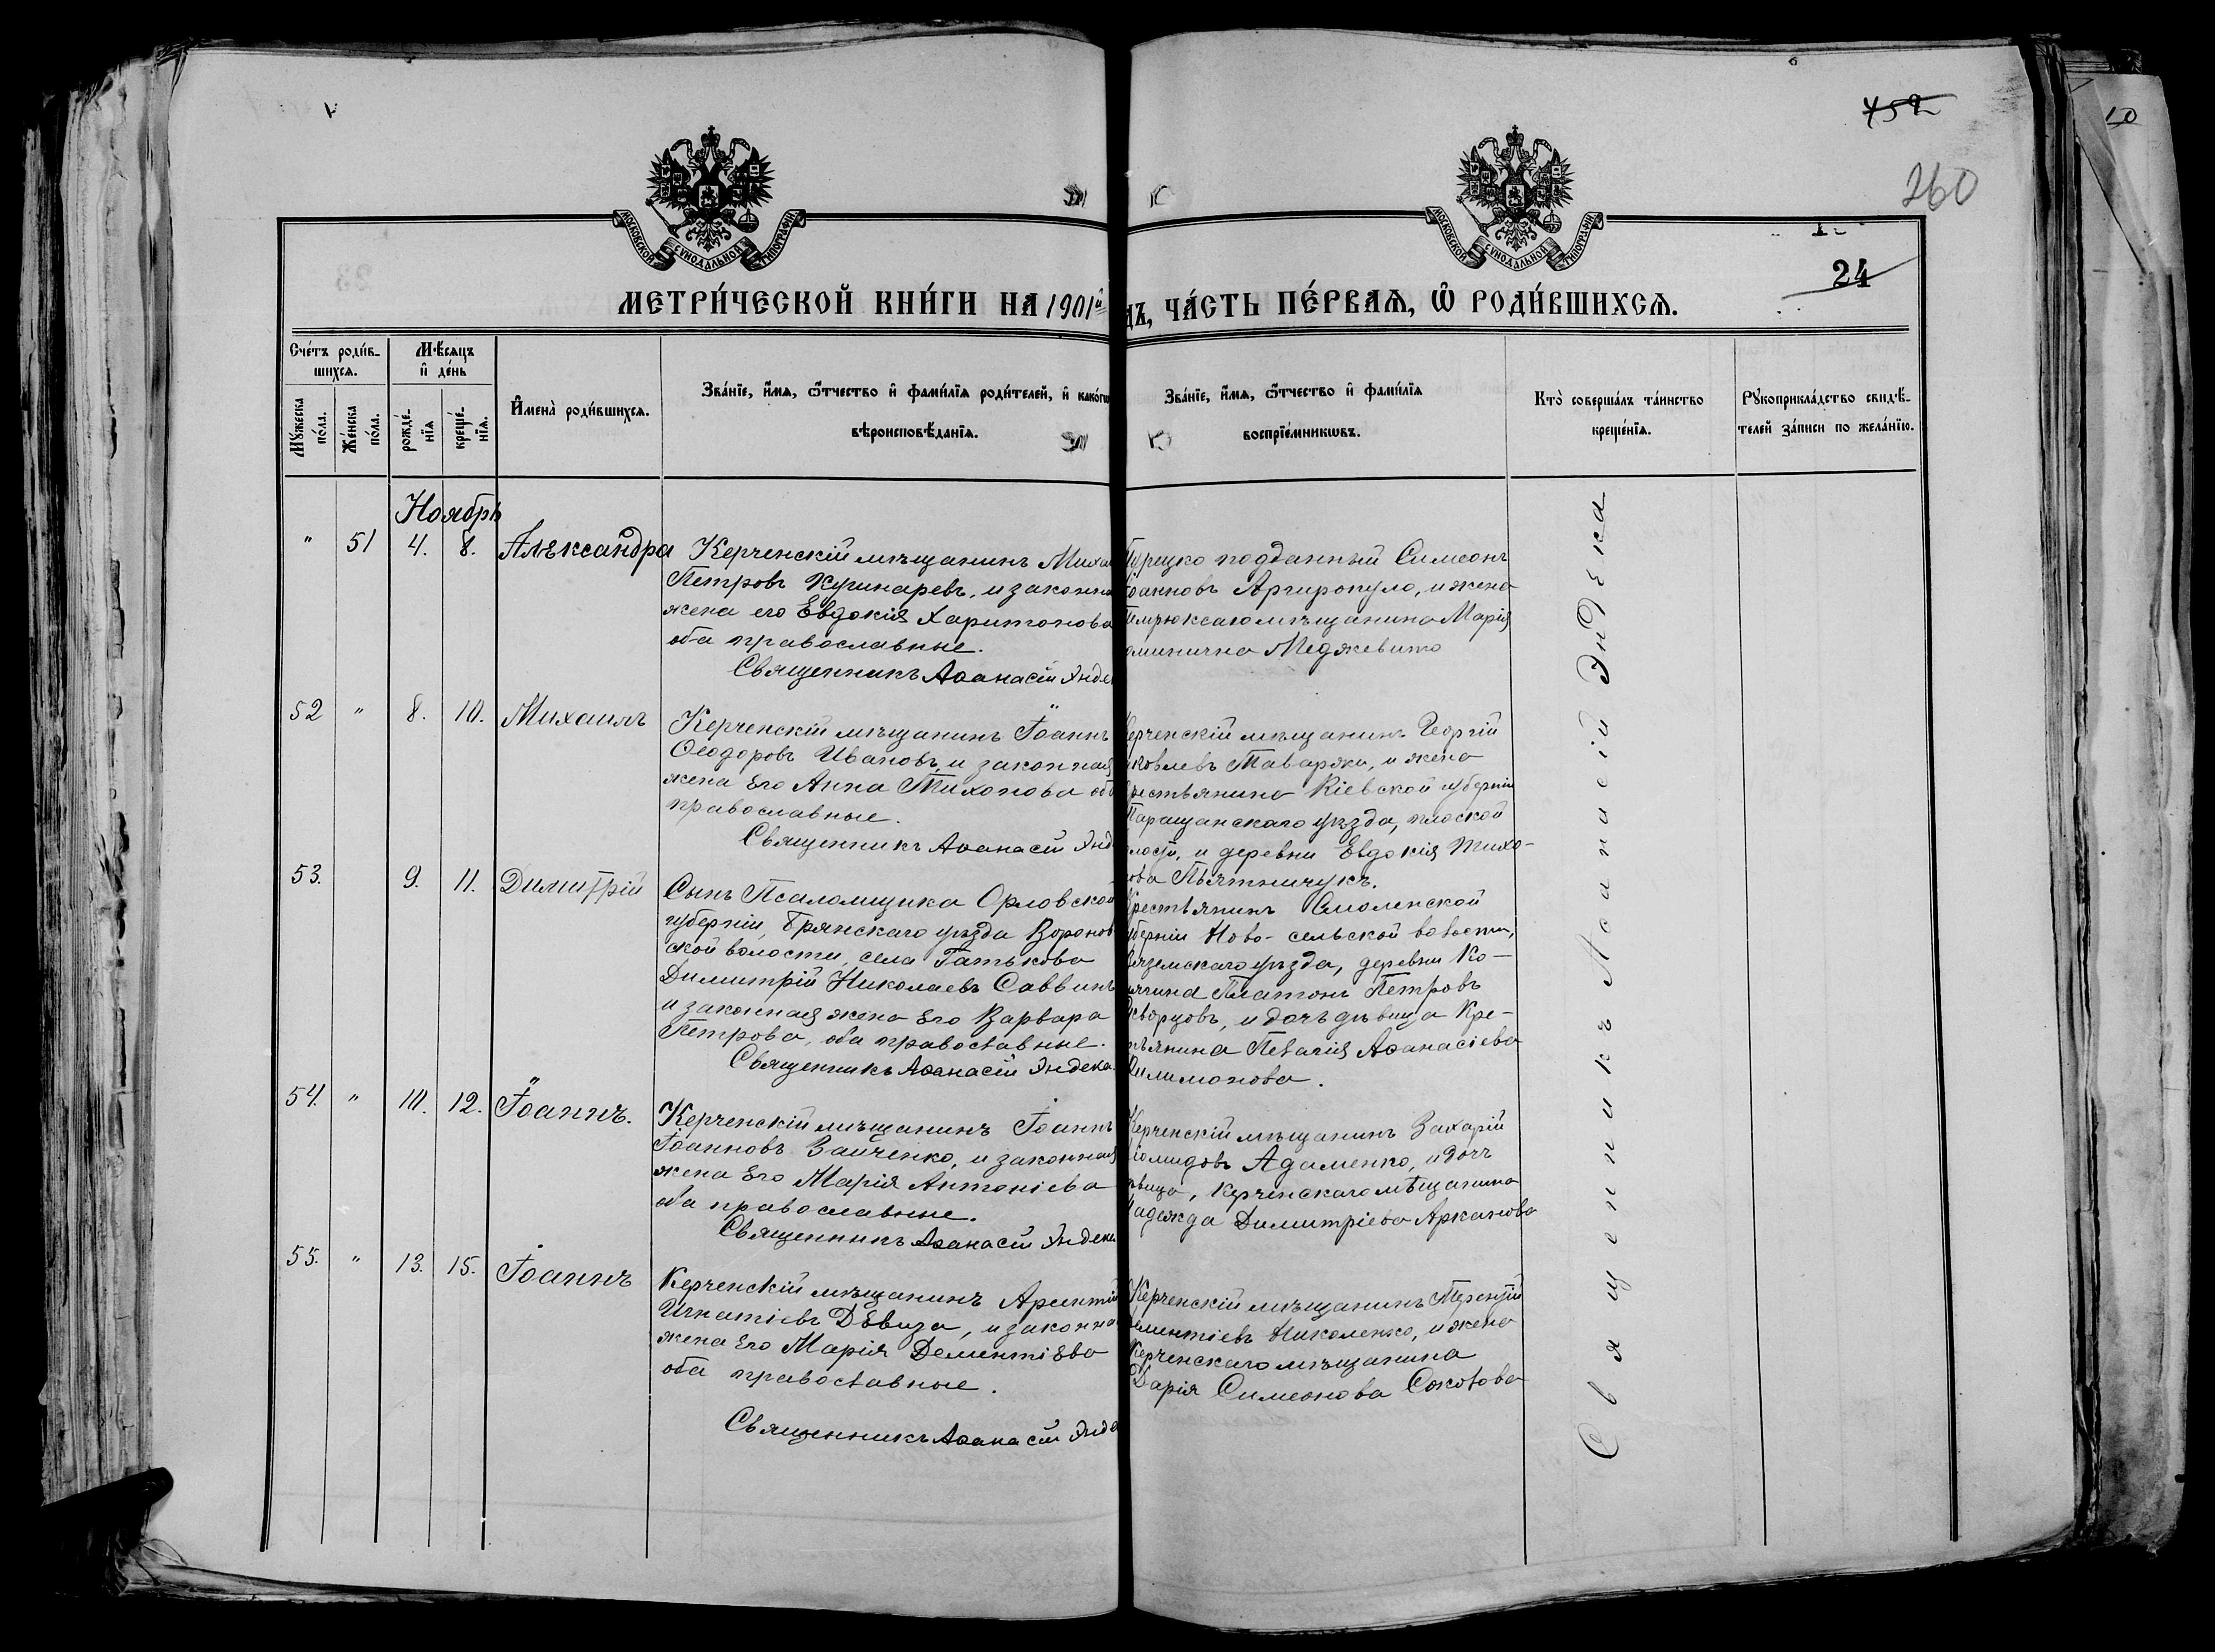 752
260
10
МОСКОВСКОЙ СѴНОДАЛЬНОЙ ТИПОГРАФІИ
МОСКОВСКОЙ СѴНОДАЛЬНОЙ ТИПОГРАФІИ
24
МЕТРИ́ЧЕСКОЙ КНИ́ГИ НА 1901й
ДЪ, ЧА́СТЬ ПЕ́РВАѦ, Ѿ РОДИ́ВШИХСѦ.
Сче́тъ роди́в-
шихсѧ.
Мѣ́сѧцъ
и҆ де́нь
Мꙋжеска по́ла.
Же́нска по́ла.
рожде́нїѧ
креще́нїѧ.
И҆мена̀ роди́вшихсѧ.
Зва́нїе, и҆́мѧ, ѻ҆́тчество и҆ фами́лїѧ роди́телей, и҆ како́гѡ
вѣроисповѣ́данїѧ.
Зва́нїе, и҆́мѧ, ѻ҆́тчество и҆ фами́лїѧ
воспрїе́мникѡвъ.
Кто̀ соверша́лъ та́инство
креще́нїѧ.
Рꙋкоприкла́дство свидѣ́-
телей за́писи по жела́нїю.
Ноябрь
" 51 4. 8. Александра
Керченскій мѣщанинъ Миха
Петровъ Кушнаревъ, и законна
жена его Евдокія Харитонова
оба православные.
Священникъ Аѳанасій Энде
Турецко подданный Симеонъ
Іоанновъ Аргиропуло, и жена
Темрюкскаго мѣщанина Марія
Меджевито
52 " 8. 10. Михаилъ
Керченскій мѣщанинъ Іоаннъ
Ѳеодоровъ Ивановъ, и законная
жена Его Анна Тихонова об
православные.
Священникъ Аѳанасій Энд
Керченскій мѣщанинъ Георгій
Яковлевъ Таваржи, и жена
Крестьянина Кіевской губерніи
Таращанскаго уѣзда, плоской
волости, и деревни Евдокія Тихо-
нова Пьятничукъ.
53. 9. 11. Димитрій
Сынъ Псаломщика Орловской
губерніи, Брянскаго уѣзда Воронов
ской волости, села Гатькова
Димитрій Николаевъ Саввинъ
и законная жена Его Варвара
Петрова, оба православные.
Священникъ Аѳанасій Эндека
Крестьянинъ Смоленской
губерніи Ново-сельской волости,
Вяземскаго уѣзда, деревни Ко-
Платонъ Петровъ
Скворцовъ, и дочь дѣвица Кре-
стьянина Пелагія Аѳанасіева
Филимонова.
54. " 10. 12. Іоаннъ.
Керченскій мѣщанинъ Іоаннъ
Іоанновъ Заиченко, и законная
жена Его Марія Антоніева
оба православные.
Священникъ Аѳанасій Эндека
Керченскій мѣщанинъ Захарій
Діомидовъ Адаменко, и дочь
дѣвица, Керченскаго мѣщанина
Надежда Димитріева Арканова
55. " 13. 15. Іоаннъ
Керченскій мѣщанинъ
Игнатіевъ Девиза, и законна
жена Его Марія Дементіева
оба православные.
Священникъ Аѳанасій Энде
Керченскій мѣщанинъ Терентій
Дементіевъ Николенко, и жена
Керченскаго мѣщанина
Дарія Симеонова Соколова
Священникъ Аѳанасій Эндека